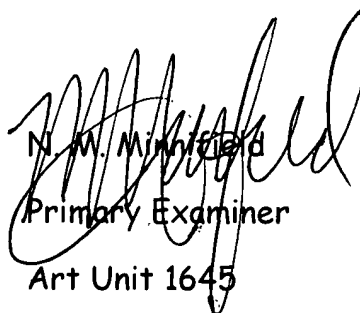 N. M. Minnifield
Primary Examiner
Art Unit 1645